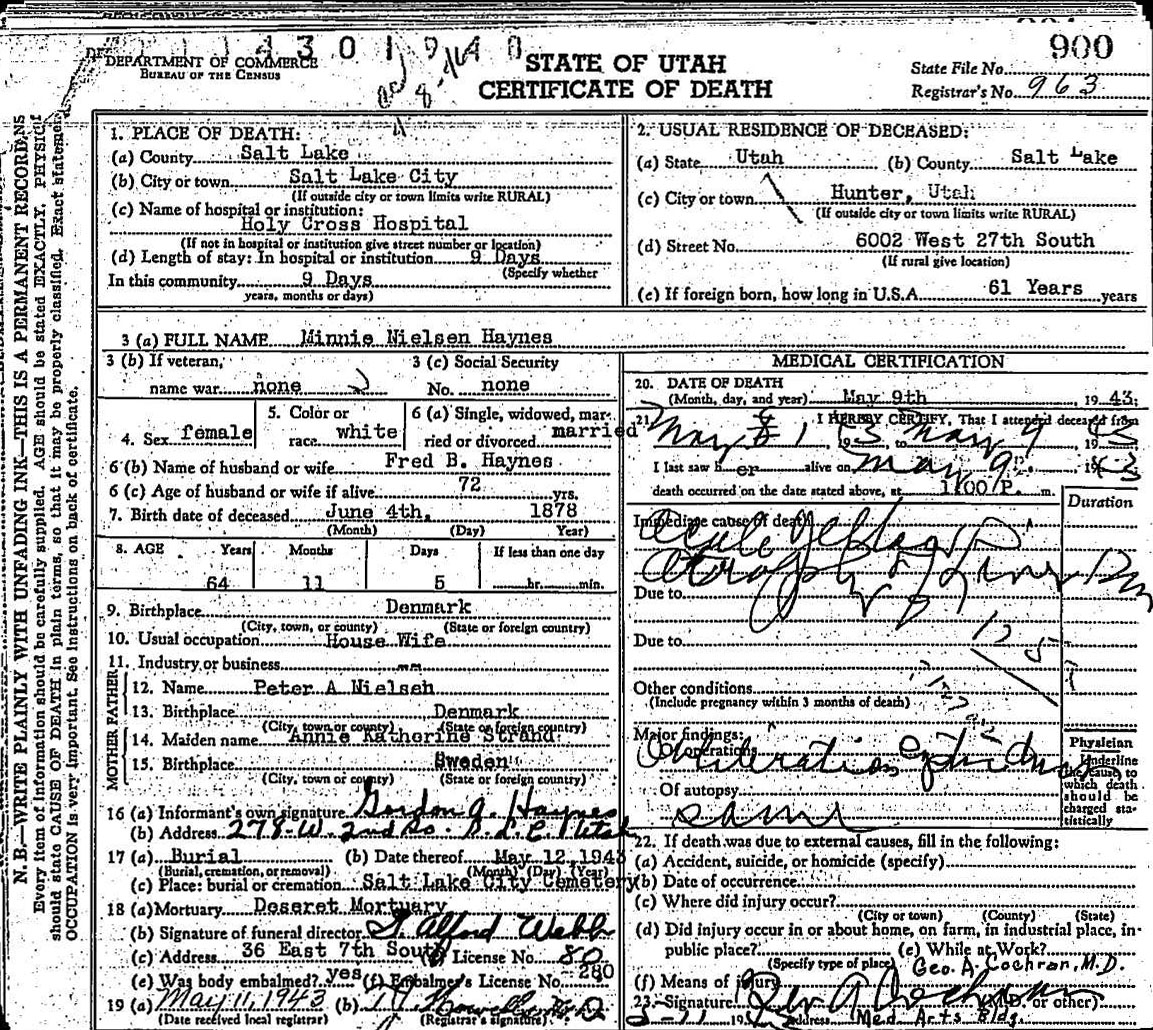 4 3 0 1 9 4 0
DEPARTMENT OF COMMERCE
BUREAU OF THE CENSUS
STATE OF UTAH
CERTIFICATE OF DEATH
900
State File No.
Registrar's No. 963
N. B.—WRITE PLAINLY WITH UNFADING INK—THIS IS A PERMANENT RECORD
Every item of information should be carefully supplied. AGE should be stated EXACTLY. PHYSICI
should state CAUSE OF DEATH in plain terms, so that it may be properly classified. Exact statemen
OCCUPATION is very important. See instructions on back of certificate.
1. PLACE OF DEATH:
(a) County Salt Lake
(b) City or town Salt Lake City
(If outside city or town limits write RURAL)
(c) Name of hospital or institution:
Holy Cross Hospital
(If not in hospital or institution give street number or location)
(d) Length of stay: In hospital or institution 9 Days
(Specify whether
In this community 9 Days
years, months or days)
2. USUAL RESIDENCE OF DECEASED:
(a) State Utah (b) County Salt Lake
(c) City or town Hunter, Utah
(If outside city or town limits write RURAL)
(d) Street No. 6002 West 27th South
(If rural give location)
(e) If foreign born, how long in U.S.A. 61 Years years
3 (a) FULL NAME Minnie Nielsen Haynes
3 (b) If veteran, name war none
3 (c) Social Security No. none
4. Sex female
5. Color or race white
6 (a) Single, widowed, married or divorced married
6 (b) Name of husband or wife Fred B. Haynes
6 (c) Age of husband or wife if alive 72 yrs.
7. Birth date of deceased June 4th, 1878
(Month) (Day) Year)
8. AGE Years Months Days If less than one day
64 11 5 hr. min.
9. Birthplace Denmark
(City, town, or county) (State or foreign country)
10. Usual occupation House Wife
11. Industry or business --
FATHER
12. Name Peter A Nielsen
13. Birthplace Denmark
(City, town or county) (State or foreign country)
MOTHER
14. Maiden name Annie Katherine Strand
15. Birthplace Sweden
(City, town or county) (State or foreign country)
16 (a) Informant's own signature Gordon J. Haynes
(b) Address 278-W. 2nd So. S. L. C. Utah
17 (a) Burial (b) Date thereof May 12, 1943
(Burial, cremation, or removal) (Month) (Day) (Year)
(c) Place: burial or cremation Salt Lake City Cemetery
18 (a) Mortuary Deseret Mortuary
(b) Signature of funeral director Alford Webb
(c) Address 36 East 7th South License No. 80
(e) Was body embalmed? yes (f) Embalmer's License No. 280
19 (a) May 11, 1943 (b)
(Date received local registrar) (Registrar's signature)
MEDICAL CERTIFICATION
20. DATE OF DEATH
(Month, day, and year) May 9th, 1943;
21. I HEREBY CERTIFY, That I attended deceased from
May 1 1943 to May 9 1943
I last saw her alive on May 9 1943
death occurred on the date stated above, at 1:00 P. m.
Duration
Immediate cause of death
Acute yellow
atrophy of liver
Due to
Due to
12 5
Other conditions
(Include pregnancy within 3 months of death)
Major findings:
Of operations
Of autopsy
same
Physician
Underline the cause to which death should be charged statistically
22. If death was due to external causes, fill in the following:
(a) Accident, suicide, or homicide (specify)
(b) Date of occurrence
(c) Where did injury occur?
(City or town) (County) (State)
(d) Did injury occur in or about home, on farm, in industrial place, in public place? (e) While at Work?
(Specify type of place) Geo. A. Cochran, M.D.
(f) Means of injury
23. Signature Geo A Cochran (M.D. or other)
5-11 19 Address Med. Arts Bldg.